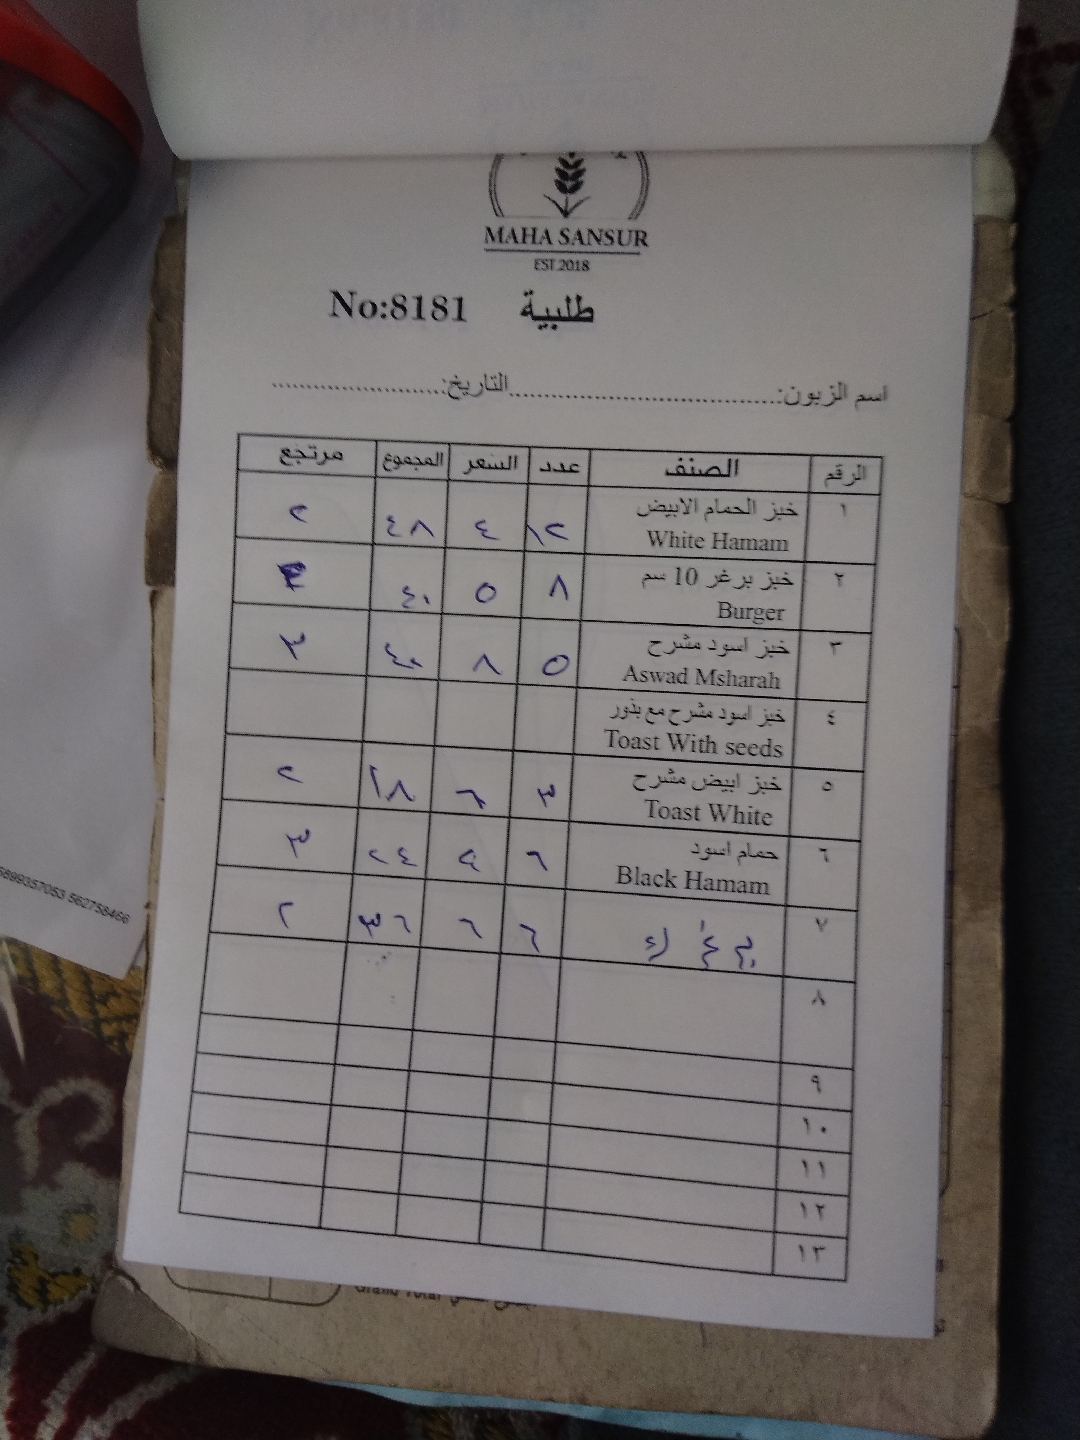 MAHA SANSUR
EST.2018
No:8181 طلبية
اسم الزبون:......................................التاريخ:........................
الرقم الصنف عدد السعر المجموع مرتجع
١ خبز الحمام الابيض ١٢ ٤ ٤٨ ٢
White Hamam
٢ خبز برغر 10 سم ٨ ٥ ٤٠
Burger
٣ خبز اسود مشرح ٥ ٨ ٤٠ ٣
Aswad Msharah
٤ خبز اسود مشرح مع بذور
Toast With seeds
٥ خبز ابيض مشرح ٣ ٦ ١٨ ٢
Toast White
٦ حمام اسود ٦ ٤ ٢٤ ٣
Black Hamam
٧ ٦ ٦ ٣٦ ٢
٨
٩
١٠
١١
١٢
١٣
562758466
Grand Total